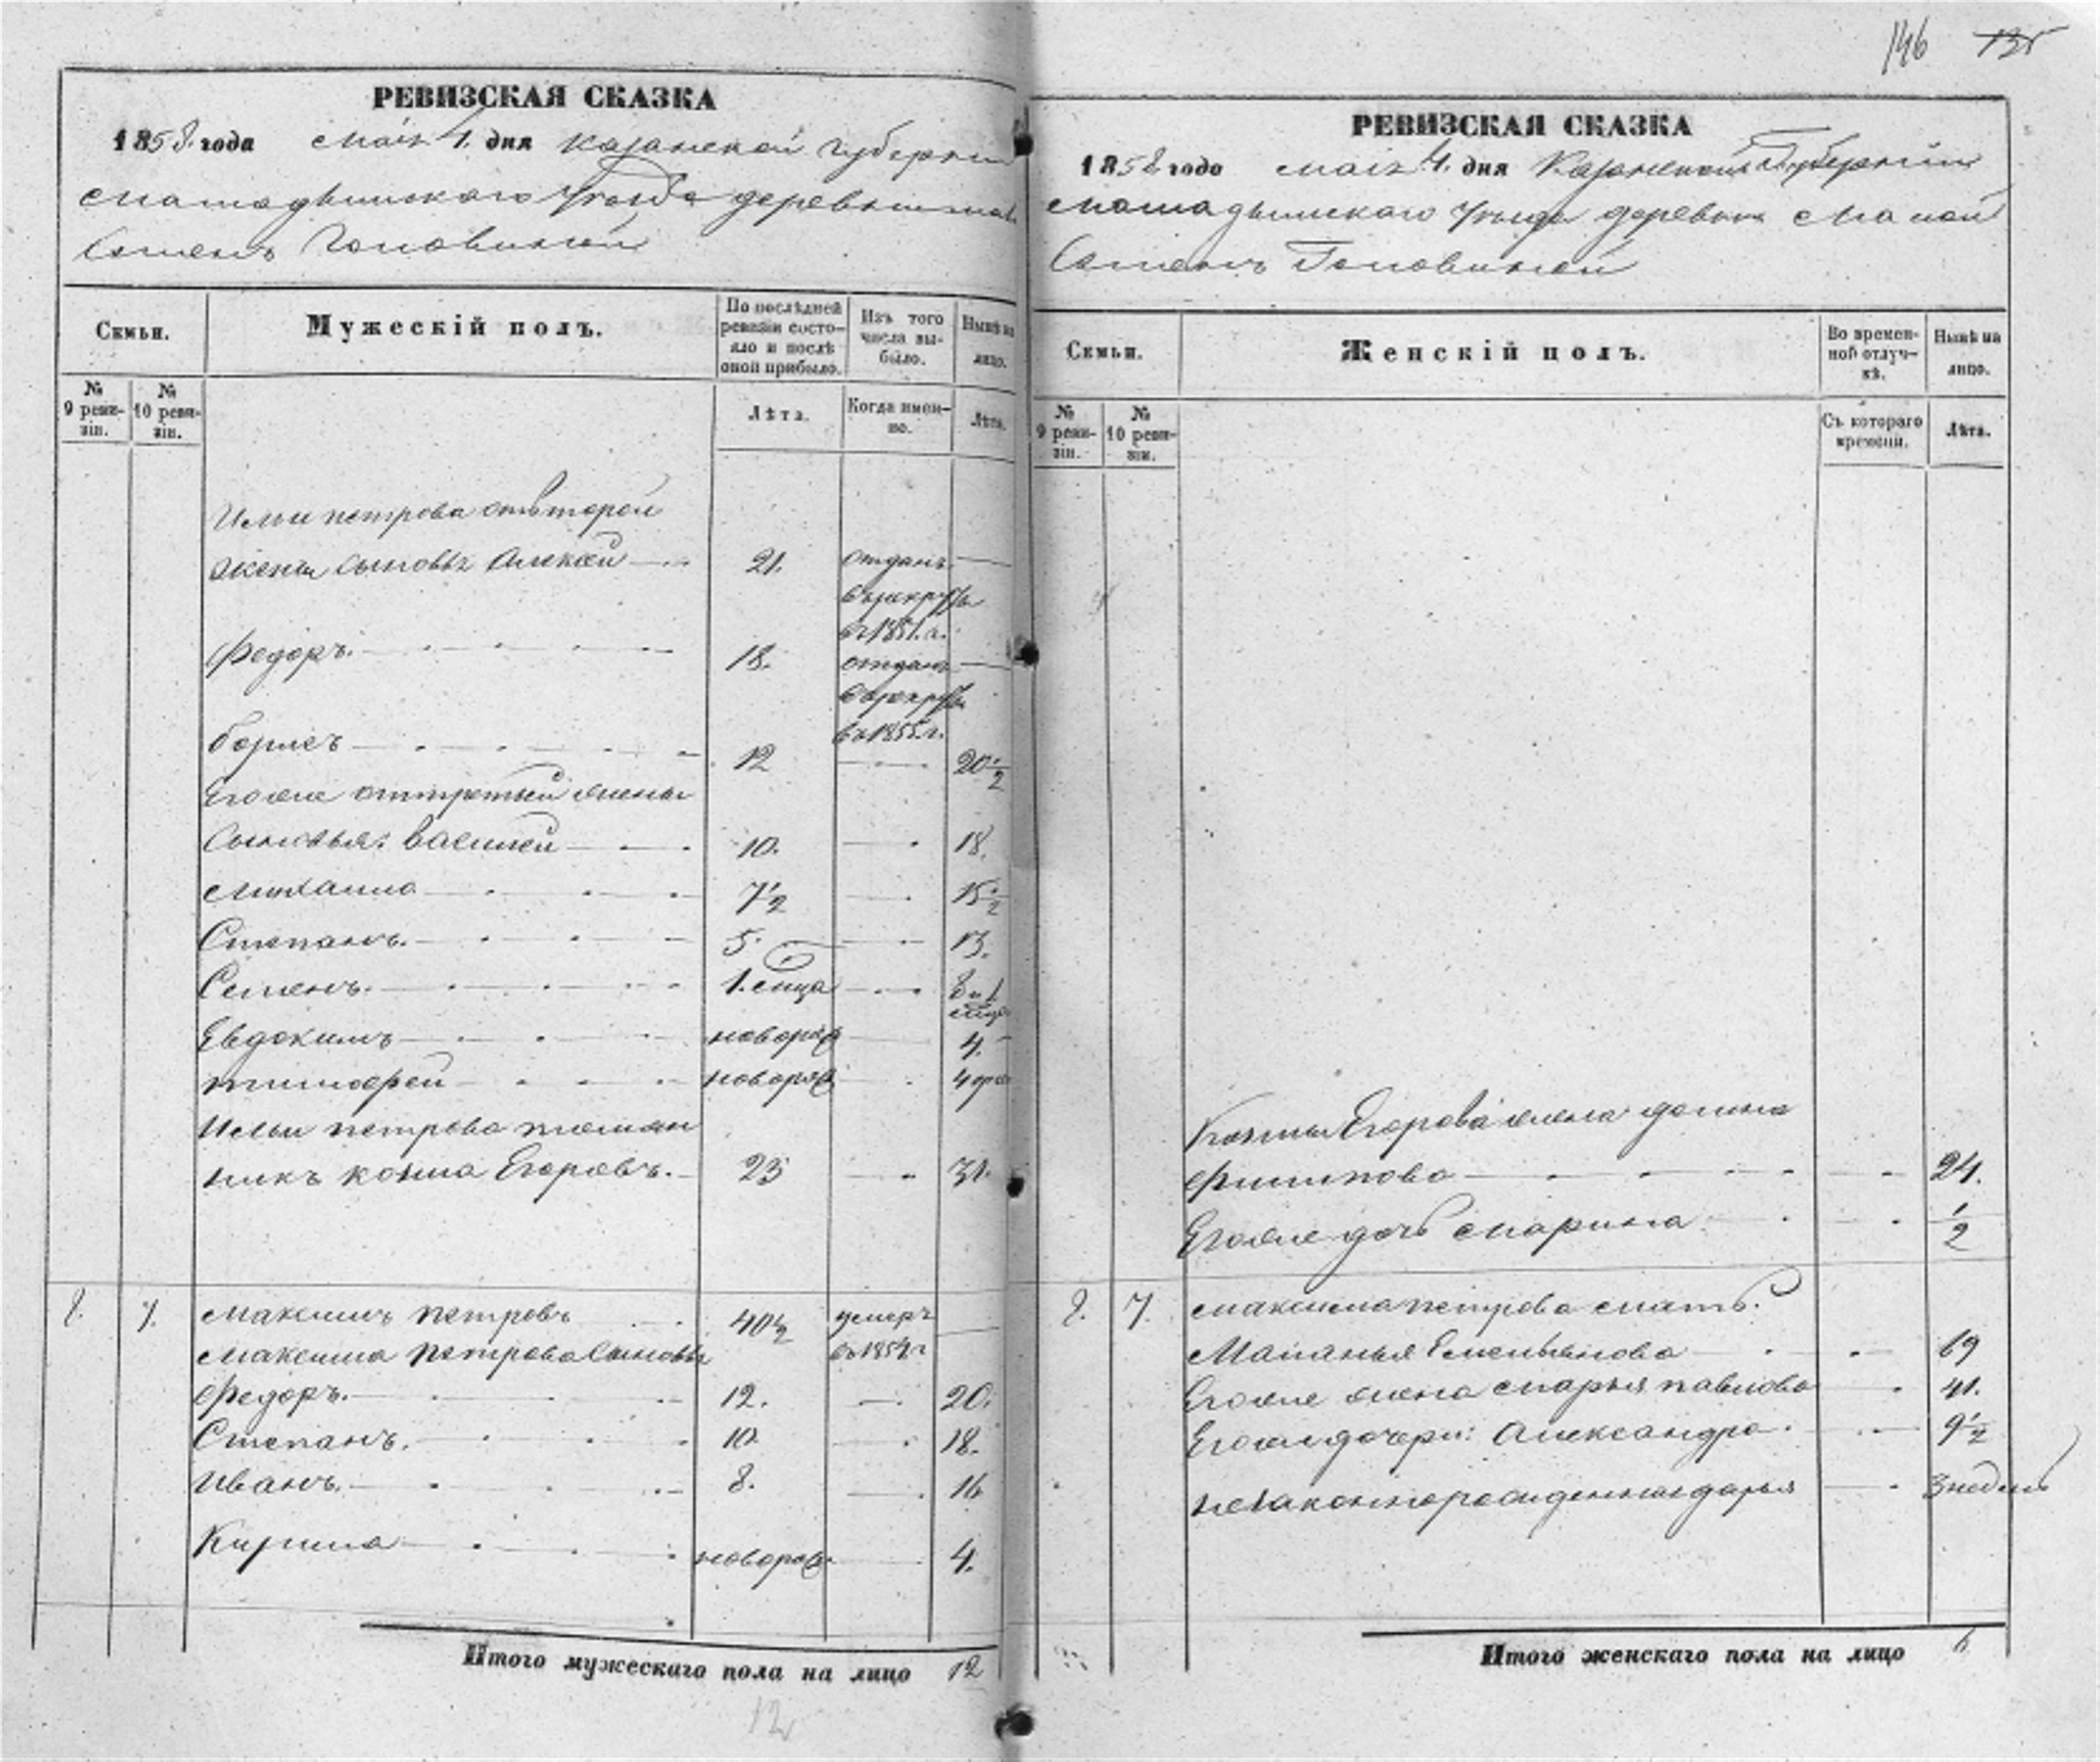 146 135
РЕВИЗСКАЯ СКАЗКА
1858. года маія 4. дня казанской губерніи
мамадышскаго уѣзда деревни
Головиной
Семьи.
Мужескій полъ.
По послѣдней ревизіи состо-яло и послѣ оной прибыло.
Изъ того числа вы-было.
Нынѣ на лицо.
№ 9 реви-зіи.
№ 10 реви-зіи.
Лѣта.
Когда имен-но.
Лѣта.
Ильи петрова отвторой
жены сыновья Алексей 21. отданъ
врекруты
в 1851. г.
Федоръ. 18. отданъ
врекруты
в 1855. г.
борисъ 12 20 1/2
Егоже оттретьей жены
Сыновья: василей 10. 18.
михаила 7 1/2 15 1/2
Степанъ. 5. 13.
Семенъ. 1. м̃ца 8 и 1 м̃ца
Евдокимъ новорож 4.
тимофей новорож
Ильи петрова племян
никъ козма Егоровъ. 23 31.
8. 7. максимъ петровъ 40 1/2 умеръ
максима петрова Сыновья в 1854 г
Федоръ. 12. 20.
Степанъ. 10. 18.
иванъ. 8. 16
Кирила новорож. 4.
Итого мужескаго пола на лицо 12
12
РЕВИЗСКАЯ СКАЗКА
1858 года маія 4. дня Казанской Губерніи
мамадышскаго уѣзда деревни малой
Головиной
Семьи.
Женскій полъ.
Во времен-ной отлуч-кѣ.
Нынѣ на лицо.
№ 9 реви-зіи.
№ 10 реви-зіи.
Съ котораго времени.
Лѣта.
Козмы Егорова жена
Филипова 24.
Егоже дочь марина 1/2
8. 7. максима петрова мать.
Маланья Емельянова 69
Егоже жена марья павлова 41.
Егоже дочери: Александра. 9 1/2
незаконнорожденная дарья 3 недель
Итого женскаго пола на лицо 6